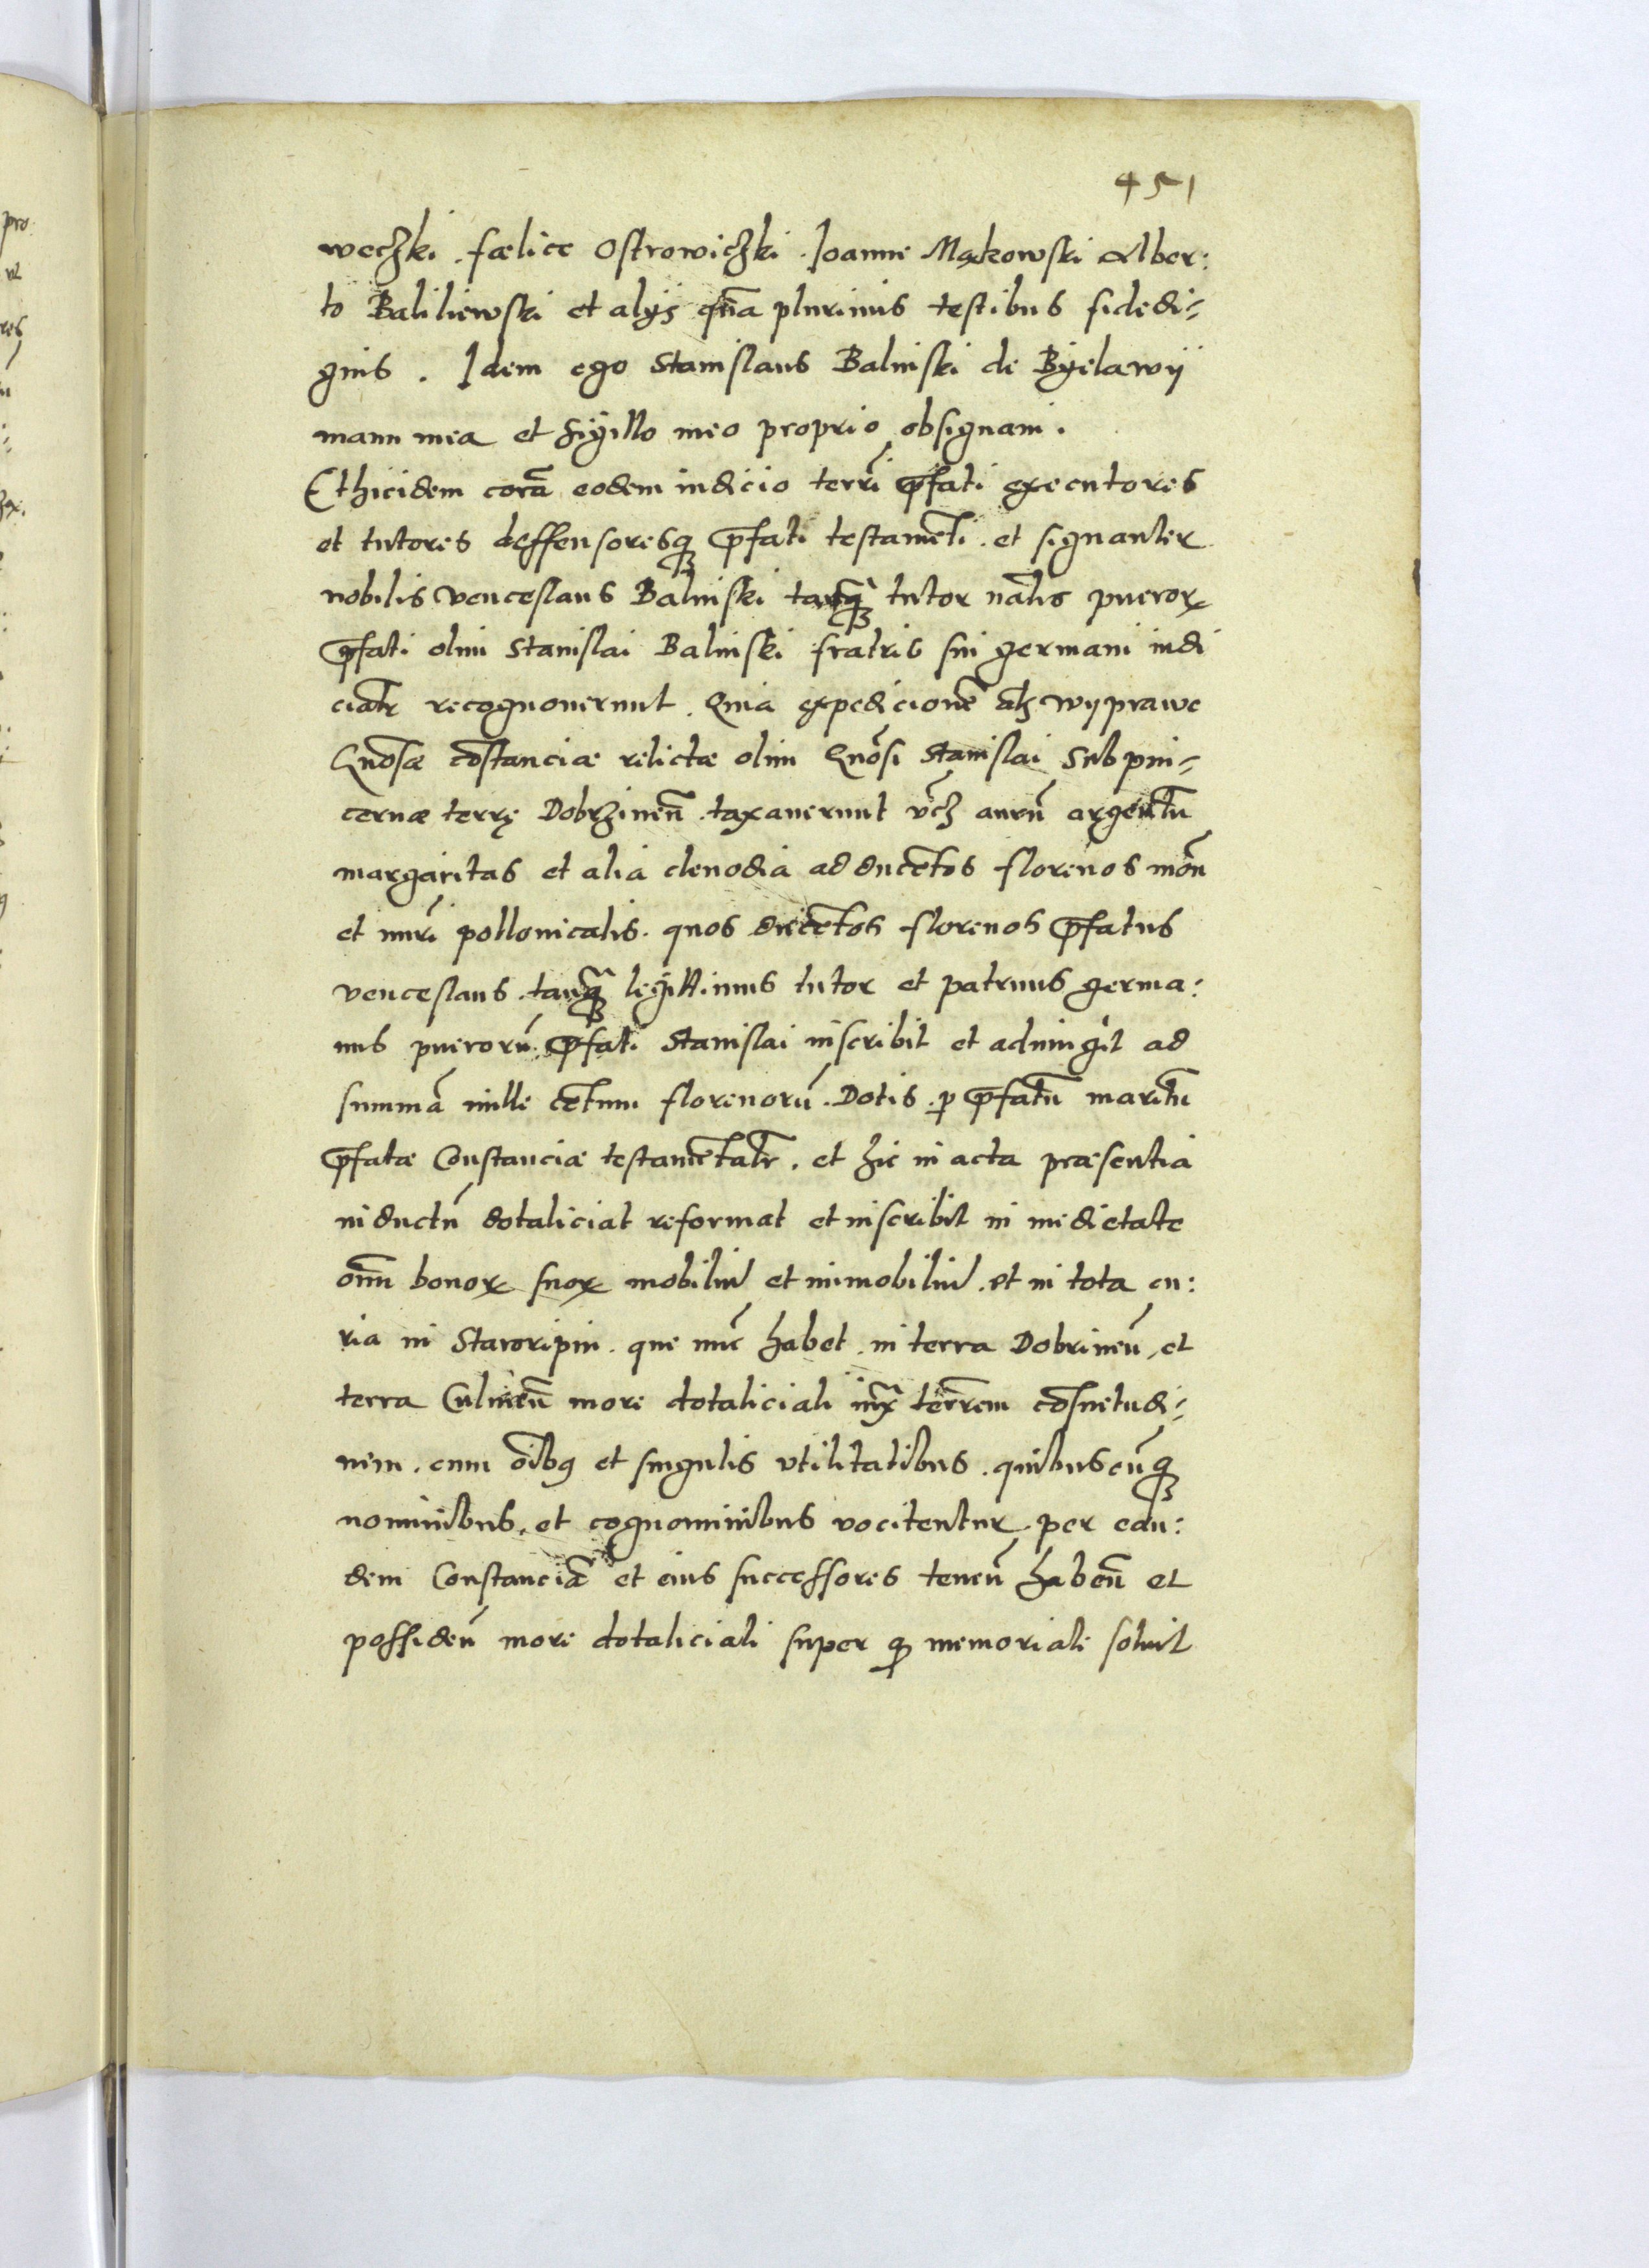 451
weczki . fœlice Ostrowiczki . Ioanne Mąkowski Alber:
to Baliliewski et alijs qūa plurimis testibus fidedi=
gnis . Idem ego Stanislaus Balinski de Byelawij
manu mea et sigillo meo proprio obsignaui .
Ethicidem corā eodem iudicio terrī p̄fati executores
et tutores deffensoresq3 p̄fati testamēti . et signanter
nobilis venceslaus Balinski tanq3 tutor nālis pueroꝝ
p̄fati olim Stanislai Balinski fratris sui germani iudi
cialr recognouerunt . Quia expedicionē als wyprawe
Gn̄osæ cōstanciæ relictæ olim Gn̄osi Stanislai Subpin=
cernæ terrę Dobrzineñ . taxauerunt vcz aurū argentū
margaritas et alia clenodia ad ducētos florenos mōn
et nūri pollonicalis . quos ducētos florenos p̄fatus
venceslaus . tanq3 legittimus tutor et patruus germa:
nus puerorū p̄fati Stanislai inscribit et adiungit ad
summā mille cētum florenorū . Dotis . p p̄fatū maritū
p̄fatæ Constanciæ testamētalr . et hic in acta præsentia
inductū dotaliciat reformat et inscribit in medietate
oīm bonoꝝ suoꝝ mobiliū et inmobiliū . et in tota cu:
ria in Staroripin . que nūc habet . in terra Dobrineñ , et
terra Culmeñ more dotaliciali iuxͣ terrēm cōsuetudi=
nem . cum oībꝯ et singulis vtilitatibus . quibuscūq3
nominibus , et cognominibus vocitentur . per ean:
dem Constanciā et eius successores teneñ habeñ et
possideñ more dotaliciali super q̨ memoriale soluit